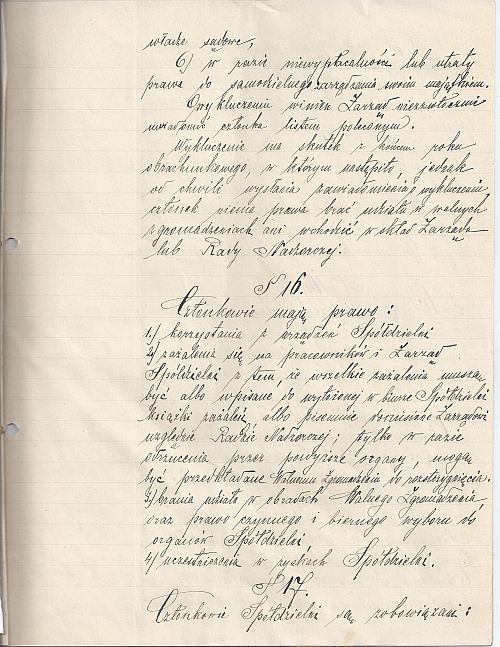 władze sądowe,
6) w razie niewypłacalności lub utraty
prawa do samodzielnego zarządzania swoim majątkiem.
O wykluczeniu winien Zarząd niezwłocznie
uwiadomić członka listem poleconym.
Wykluczenie ma skutek z końcem roku
obrachunkowego, w którym nastąpiło, jednak
od chwili wysłania zawiadomienia o wykluczeniu
członek niema prawa brać udziału w walnych
zgromadzeniach ani wchodzić w skład Zarządu
lub Rady Nadzorczej.
§ 16.
Członkowie mają prawo:
1.) korzystania z urządzeń Spółdzielni
2) zażalenia się na pracowników i Zarząd
Spółdzielni z tem, że wszelkie zażalenia muszą
być albo wpisane do wyłożonej w biurze Spółdzielni
książki zażaleń, albo pisemnie wnoszone Zarządowi
względnie Radzie Nadzorczej; tylko w razie
odrzucenia przez powyższe organy, mogą
być przedkładane Walnemu Zgromadzeniu do rozstrzygnięcia.
3) brania udziału w obradach Walnego Zgromadzenia
oraz prawo czynnego i biernego wyboru do
organów Spółdzielni
4) uczestniczenia w zyskach Spółdzielni.
§ 17.
Członkowie Spółdzielni są zobowiązani: